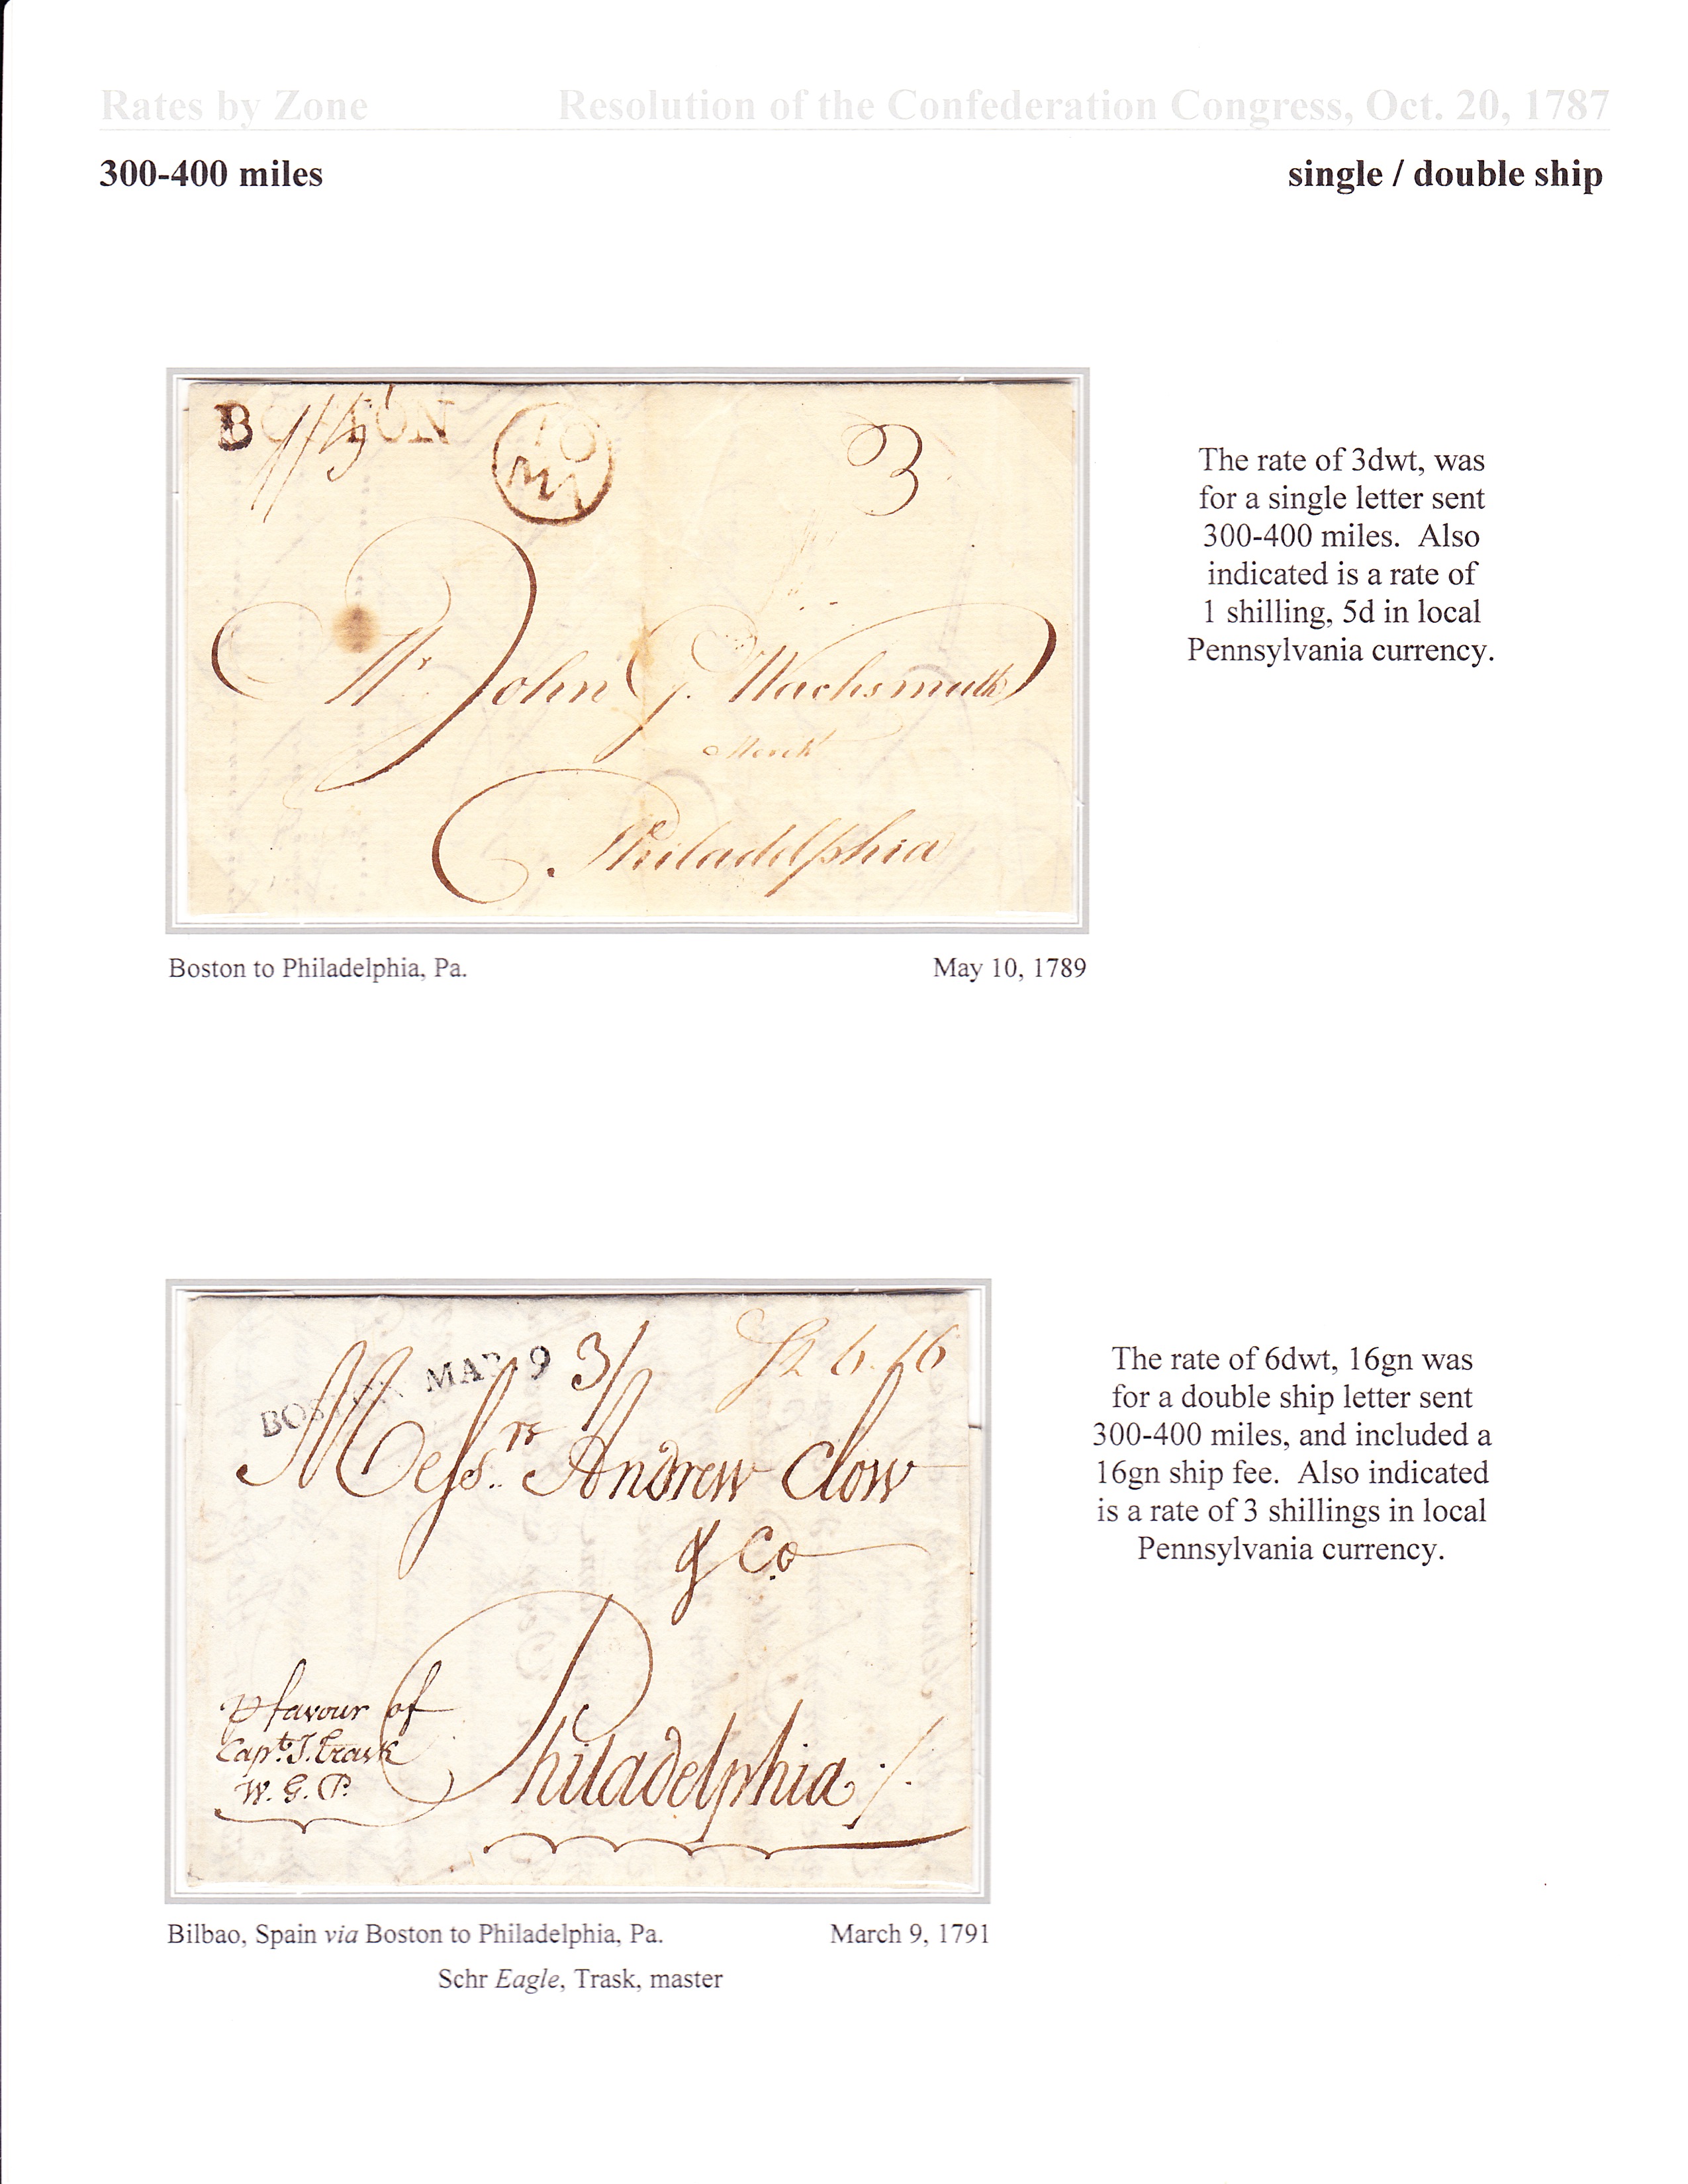 Rates by Zone Resolution of the Confederation Congress, Oct. 20, 1787
300-400 miles single / double ship
BOSTON
1/5
10
MY
3
Mr John G. Wachsmuth
Merch
Philadelphia
The rate of 3dwt, was
for a single letter sent
300-400 miles. Also
indicated is a rate of
1 shilling, 5d in local
Pennsylvania currency.
Boston to Philadelphia, Pa. May 10, 1789
BOSTON MAR 9 3/ 6.16
Messrs. Andrew Clow
& Co
Philadelphia
p favour of
Capt. J. Trask
W. G. P.
The rate of 6dwt, 16gn was
for a double ship letter sent
300-400 miles, and included a
16gn ship fee. Also indicated
is a rate of 3 shillings in local
Pennsylvania currency.
Bilbao, Spain via Boston to Philadelphia, Pa. March 9, 1791
Schr Eagle, Trask, master